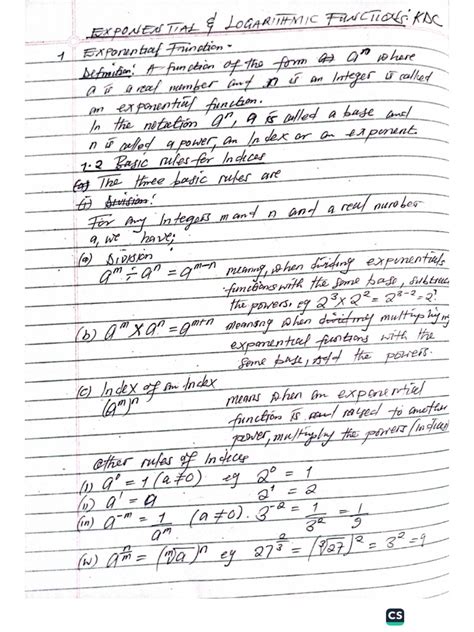 EXPONENTIAL & LOGARITHMIC FUNCTIONS: KDC
1 Exponential Function -
Definition: A function of the form a^n where
a is a real number and n is an Integer is called
an exponential function.
In the notation a^n, a is called a base and
n is called a power, an Index or an exponent
1.2 Basic rules for Indices
(a) The three basic rules are
(i) Division:
For any Integers m and n and a real number
a, we have;
(a) Division
a^m ÷ a^n = a^{m-n} meaning, when dividing exponentials
functions with the same base, subtract
the powers. eg 2^3 × 2^2 = 2^{3-2} = 2
(b) a^m × a^n = a^{m+n} meaning when dividing multiplying
exponential functions with the
same base, add the powers.
(c) Index of an Index
(a^m)^n means when an exponential
function is raised to another
power, multiply the powers (Indices)
Other rules of Indices
(i) a^0 = 1 (a≠0) eg 2^0 = 1
(ii) a^1 = a 2^1 = 2
(iii) a^{-m} = 1/a^m (a≠0). 3^{-2} = 1/3^2 = 1/9
(iv) a^{n/m} = (^m√a)^n eg 27^{2/3} = (^3√27)^2 = 3^2 = 9
CS